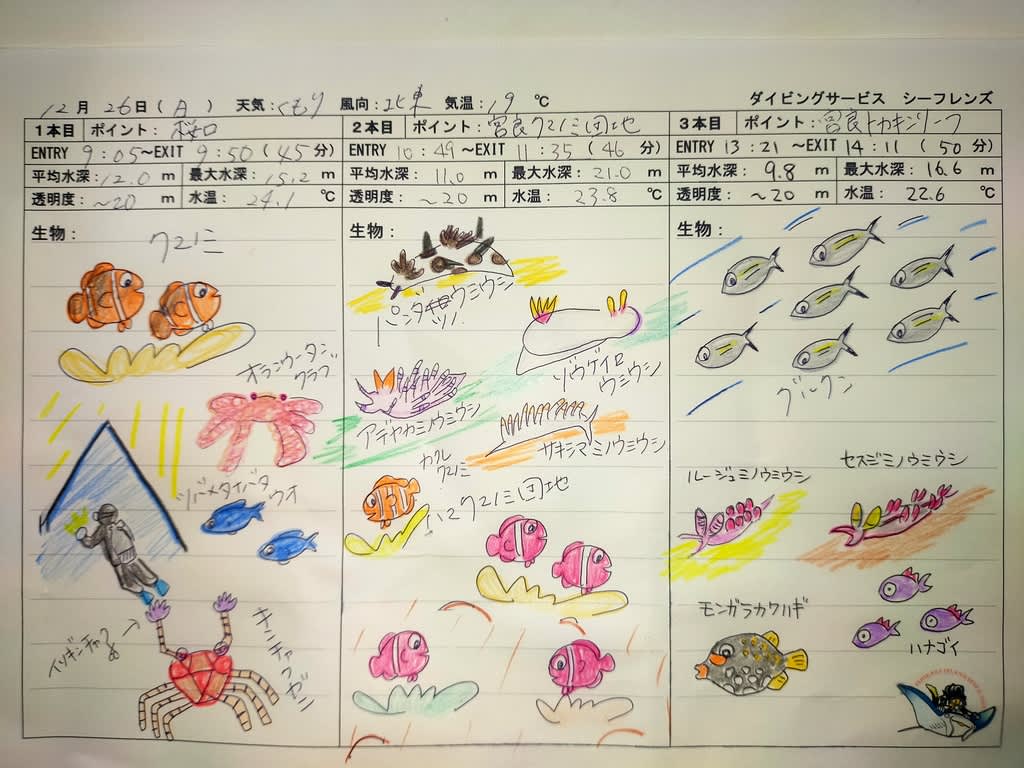 12月 26日(月) 天気:くもり 風向:北東 気温:19 ℃ ダイビングサービス シーフレンズ
1本目 ポイント: 桜口
ENTRY 9:05~EXIT 9:50(45分)
平均水深:12.0 m 最大水深:15.2 m
透明度:~20 m 水温: 24.1 ℃
生物:
クマノミ
オランウータン
クラブ
ツバメタイハタ
ウオ
イソギンチャク
キンチャクガニ
2本目 ポイント:宮良クマノミ団地
ENTRY 10:49~EXIT 11:35(46分)
平均水深: 11.0 m 最大水深:21.0 m
透明度: ~20 m 水温: 23.8 ℃
生物:
パンダツノウミウシ
ゾウゲイロ
ウミウシ
アデヤカミノウミウシ
サキシマミノウミウシ
カル
クマノミ
ハマクマノミ団地
3本目 ポイント:宮良トカキンリーフ
ENTRY 13:21 ~EXIT 14:11(50分)
平均水深: 9.8 m 最大水深: 16.6 m
透明度: ~20 m 水温: 22.6 ℃
生物:
グルクン
ルージュミノウミウシ
セスジミノウミウシ
モンガラカワハギ
ハナゴイ